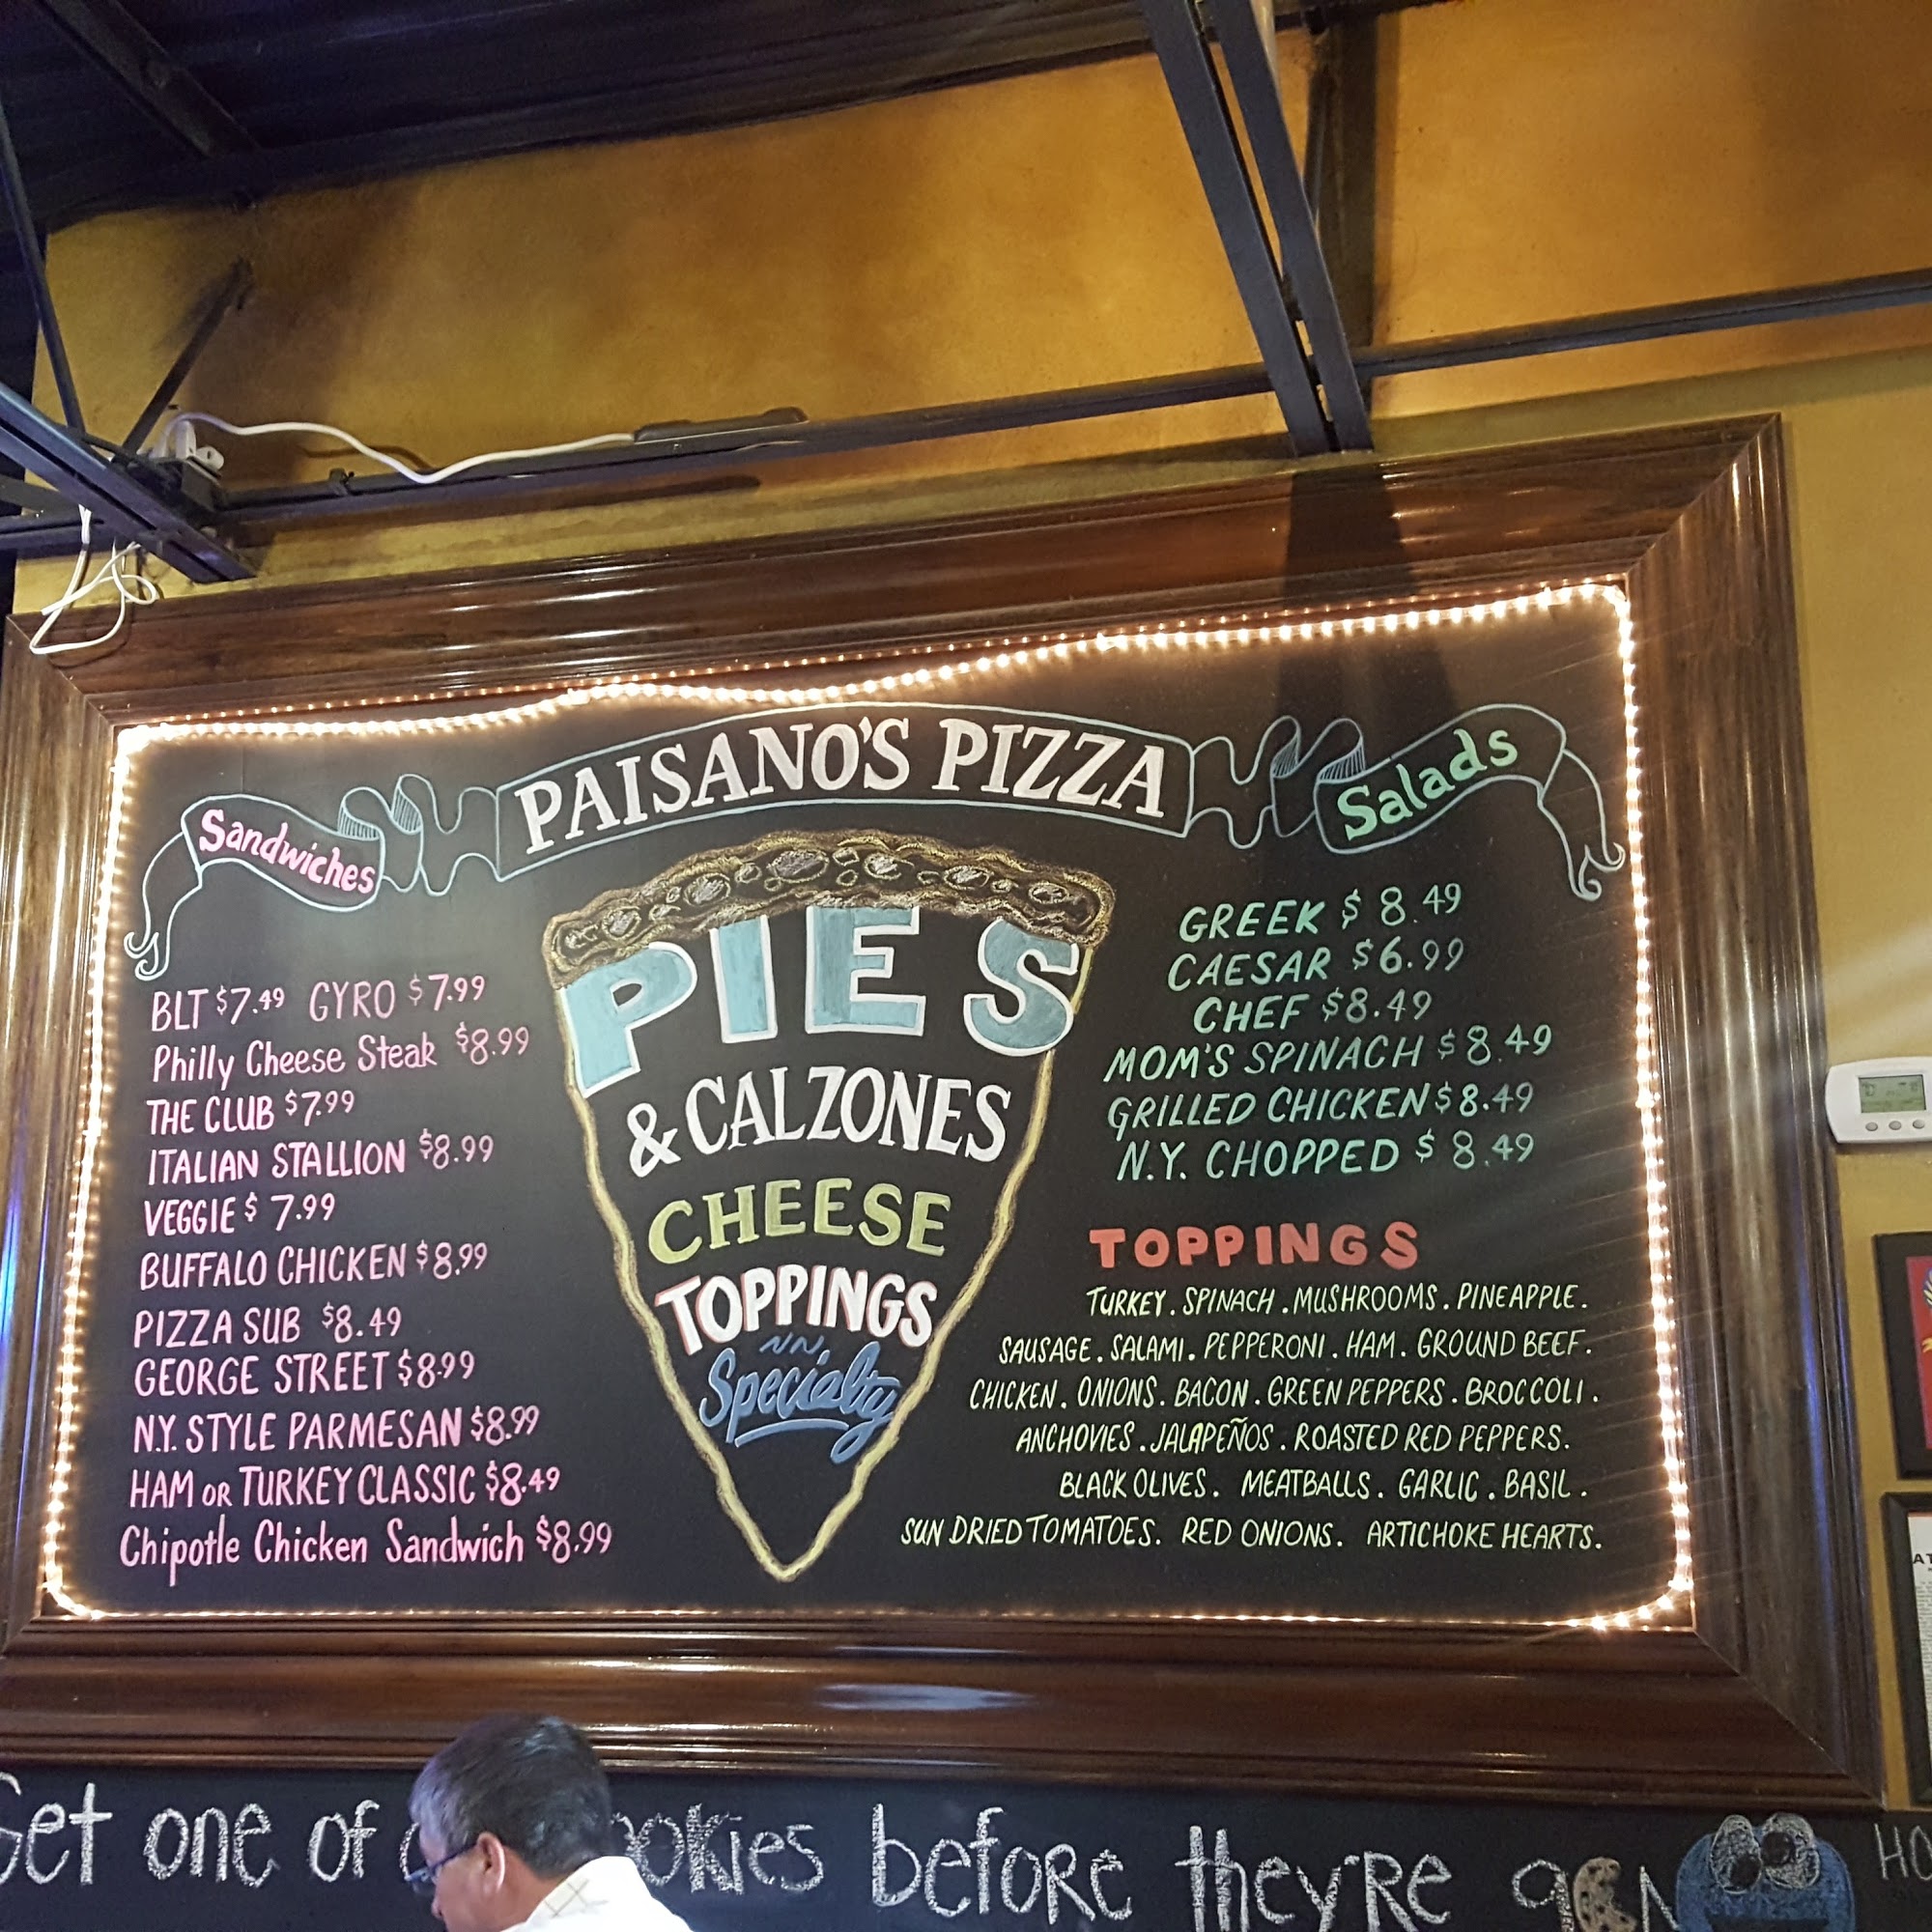 PAISANO'S PIZZA
Sandwiches
BLT $7.49 GYRO $7.99
Philly Cheese Steak $8.99
THE CLUB $7.99
ITALIAN STALLION $8.99
VEGGIE $7.99
BUFFALO CHICKEN $8.99
PIZZA SUB $8.49
GEORGE STREET $8.99
N.Y. STYLE PARMESAN $8.99
HAM OR TURKEY CLASSIC $8.49
Chipotle Chicken Sandwich $8.99
PIES
& CALZONES
CHEESE
TOPPINGS
Specialty
Salads
GREEK $8.49
CAESAR $6.99
CHEF $8.49
MOM'S SPINACH $8.49
GRILLED CHICKEN $8.49
N.Y. CHOPPED $8.49
TOPPINGS
TURKEY. SPINACH. MUSHROOMS. PINEAPPLE.
SAUSAGE. SALAMI. PEPPERONI. HAM. GROUND BEEF.
CHICKEN. ONIONS. BACON. GREEN PEPPERS. BROCCOLI.
ANCHOVIES. JALAPEÑOS. ROASTED RED PEPPERS.
BLACK OLIVES. MEATBALLS. GARLIC. BASIL.
SUN DRIED TOMATOES. RED ONIONS. ARTICHOKE HEARTS.
Get one of ookies before they're